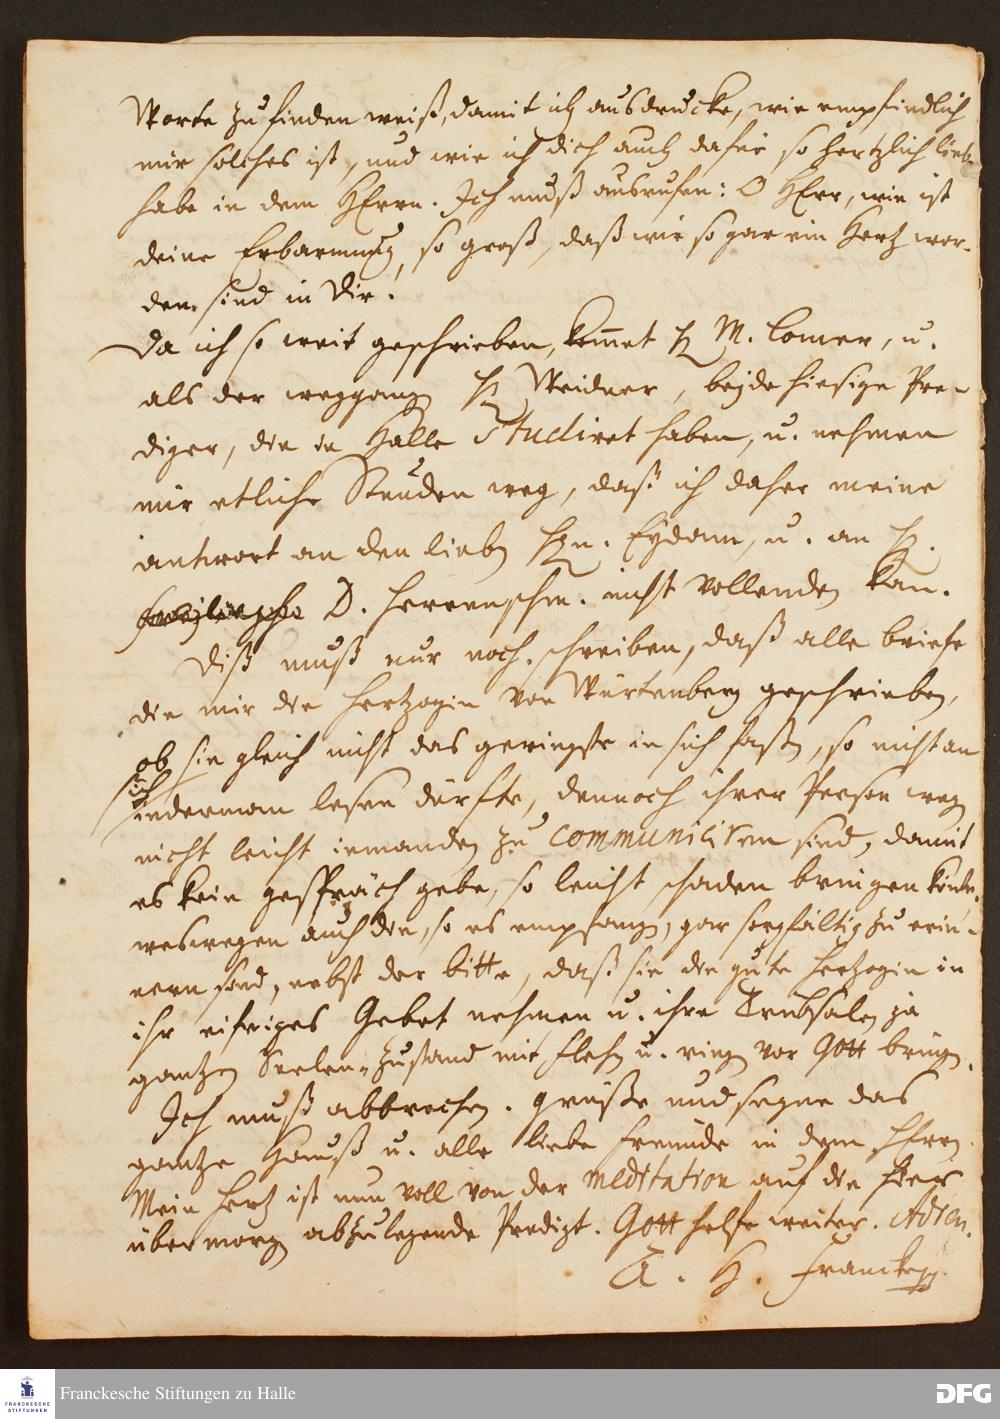 Worte zu finden weiß, damit ich ausdrucke, wie empfindlich
mir solches ist, und wie ich dich auch dafür so hertzlich lieb
habe in dem HErrn. Ich muß ausrufen: O HErr, wie ist
deine Erbarmung so groß, daß wir so gar ein Hertz wor-
den sind in Dir.
Da ich so weit geschrieben, kom̅et H. M. Comer, u.
als der weggang H. Weidner, beyde hiesige Pre-
diger, die in Halle Studiret haben, u. nehmen
mir etliche Stunden weg, daß ich daher meine
antwort an den lieben Hn. Eydam, u. an H.
D. Herrnschm. nicht vollenden kan.
Diß muß nur noch schreiben, daß alle briefe
die mir die Hertzogin von Würtenberg geschrieben,
ob sie gleich nicht das geringste in sich faßen, so nicht an
sich
iederman lesen dürfte, dennoch ihrer Person wegen
nicht leicht iemanden zu communiciren sind, damit
es kein gespräch gebe, so leicht schaden bringen könte,
weswegen auch die, so es empfangen, gar sorgfältig zu erin-
nern sind, nebst der bitte, daß sie die gute Hertzogin in
ihr eifriges Gebet nehmen u. ihre Trübsalen ja
gantzen Seelen-Zustand mit flehen u. ringen vor Gott bringen.
Ich muß abbrechen. grüße und segne das
gantze Hauß u. alle liebe Freunde in dem HErrn.
Mein Hertz ist nun voll von der meditation auf die hier
übermorgen abzulegende Predigt. Gott helfe weiter. Adieu.
A. H. Francke
Franckesche Stiftungen zu Halle
FRANCKESCHE
STIFTUNGEN
DFG